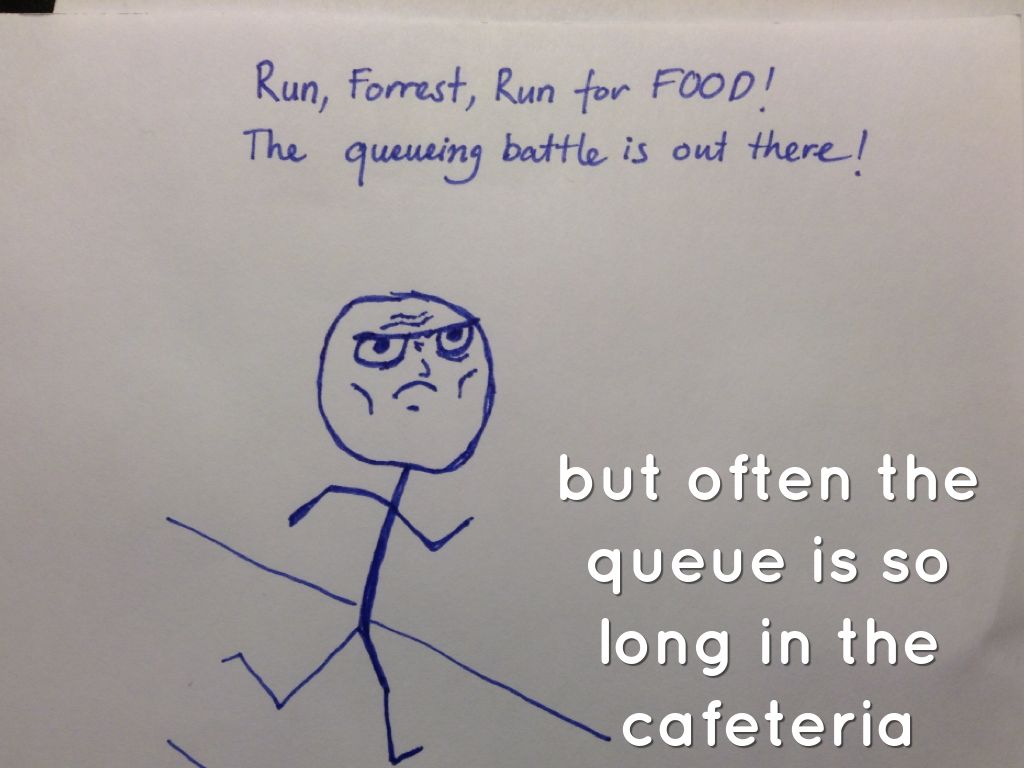 Run, Forrest, Run for FOOD!
The queueing battle is out there!
but often the
queue is so
long in the
cafeteria